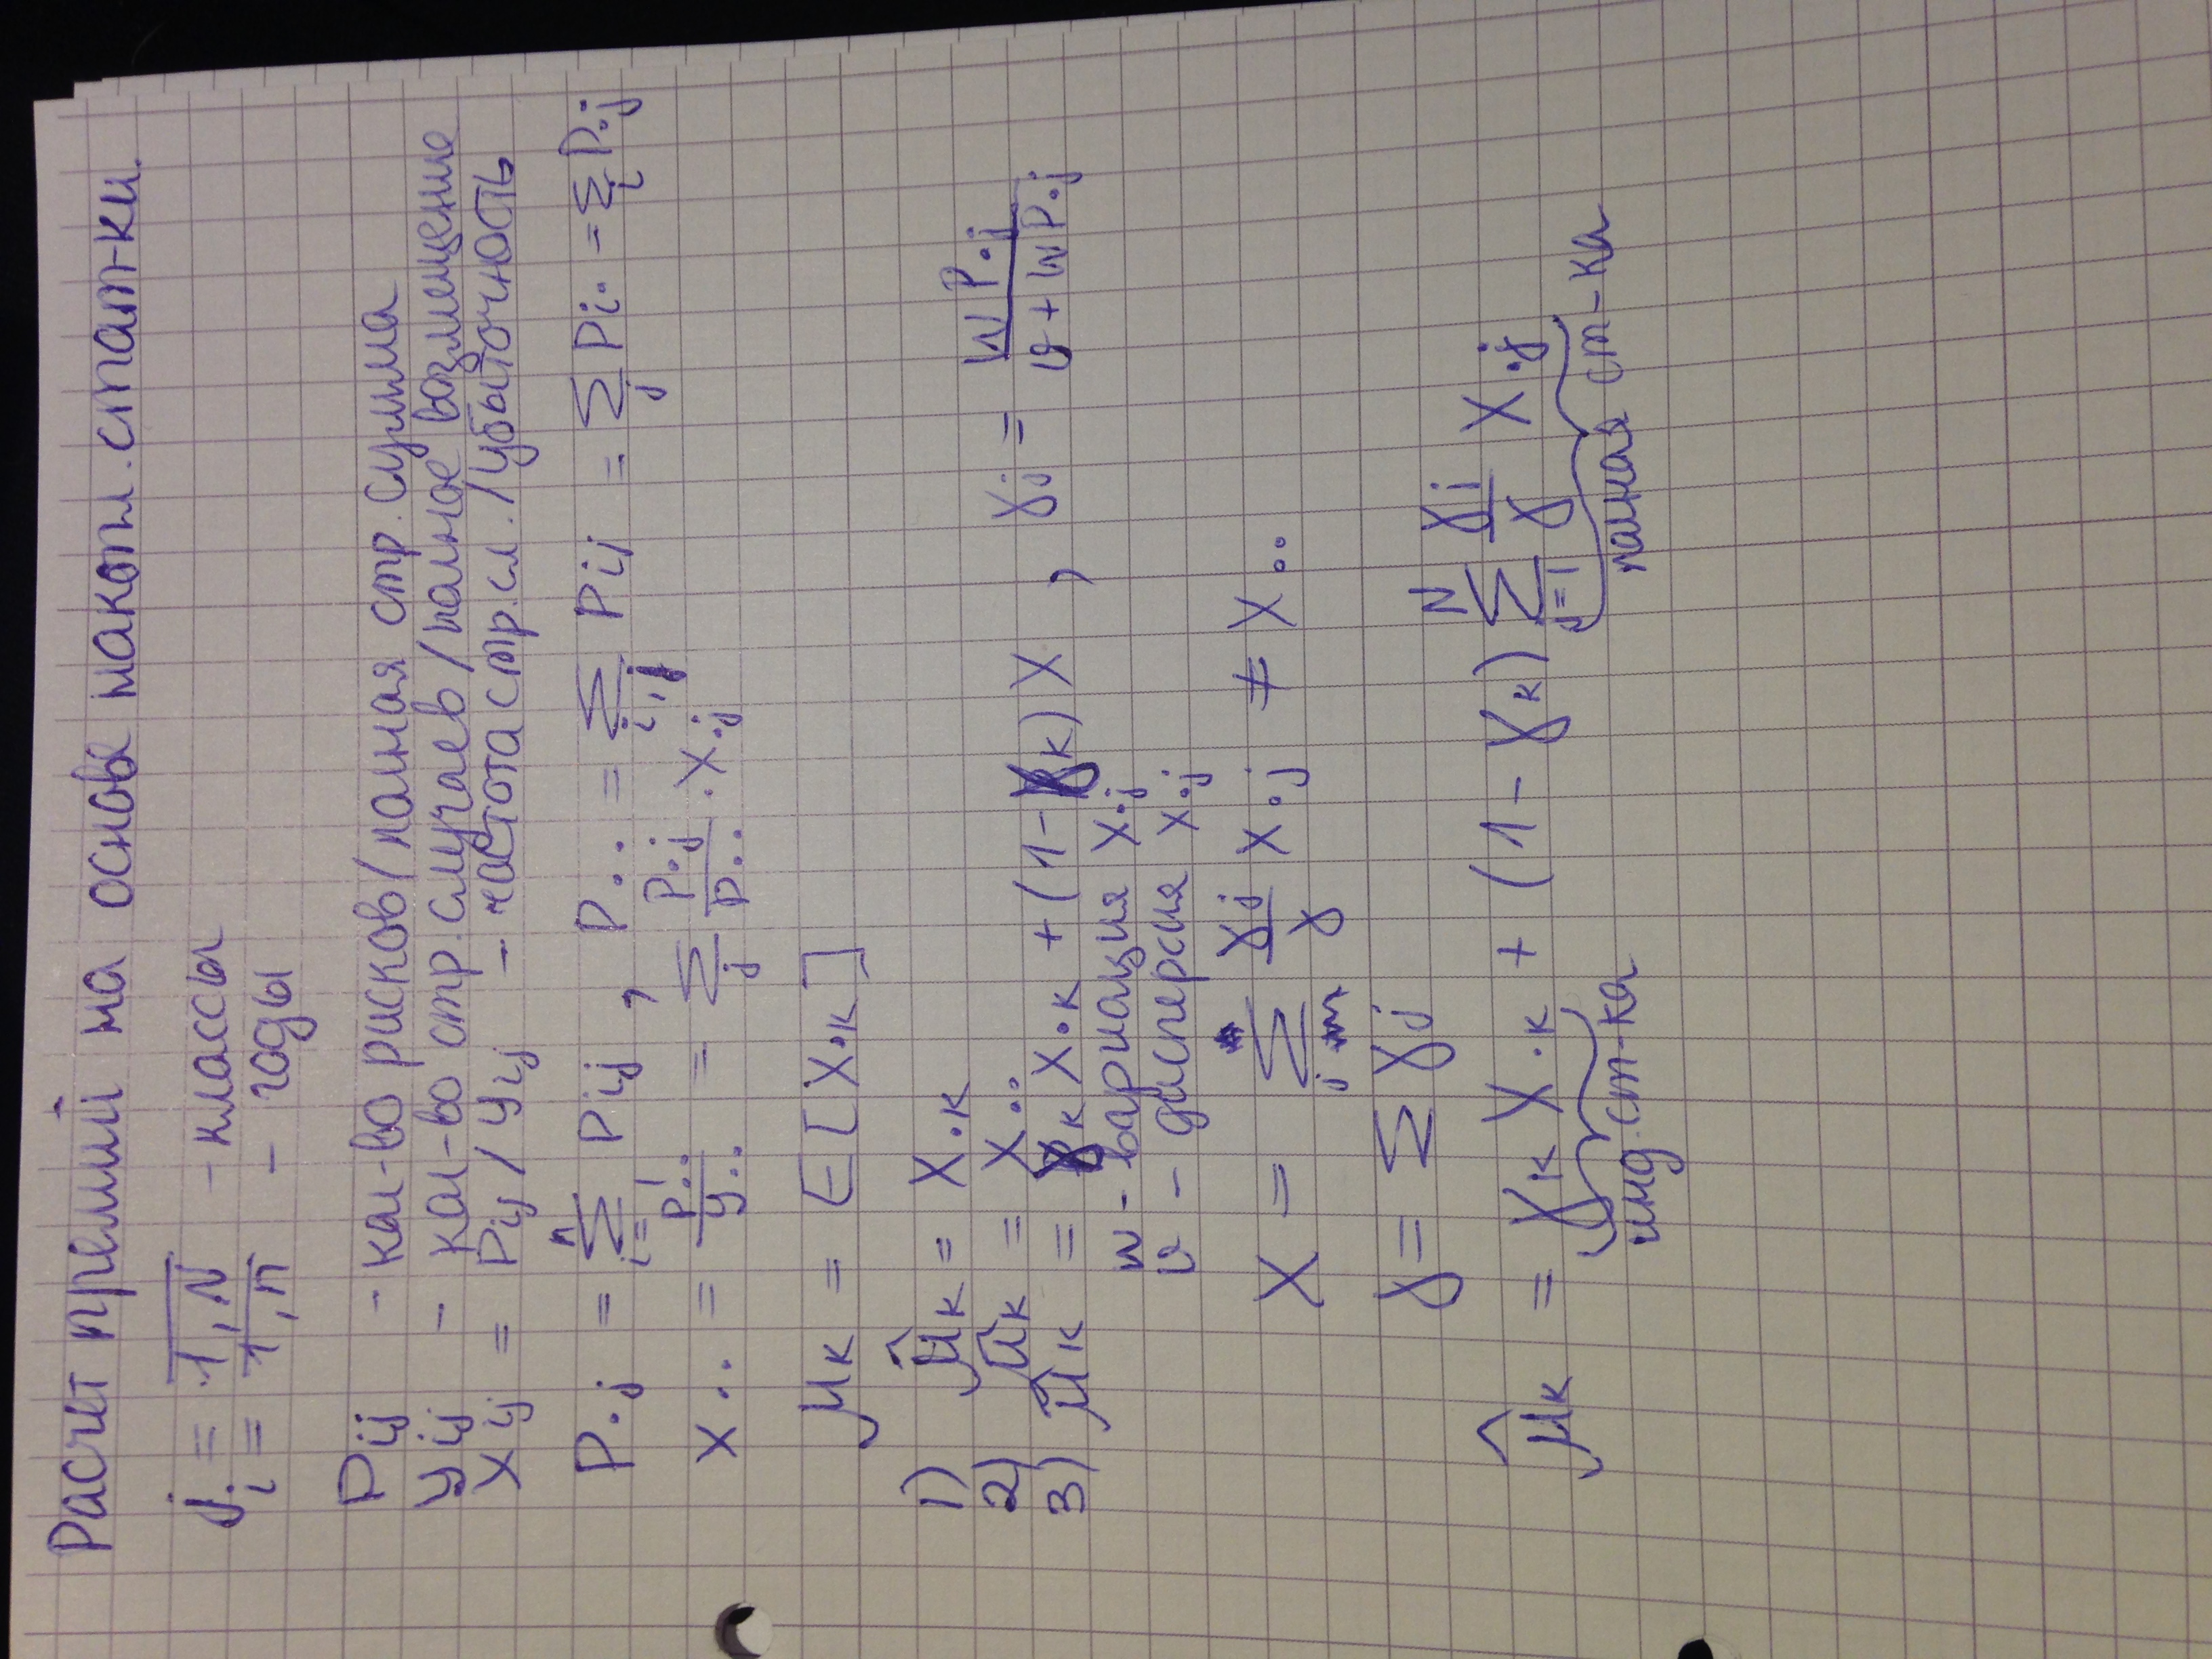 Расчёт премий на основе накопл. стат-ки.
j = 1,N - классы
i = 1,n - годы
Pij - кол-во рисков/полная стр. сумма
yij - кол-во стр. случаев/полное возмещение
xij = Pij/yij - частота стр.сл./убыточность
P.j = Σ i=1 n Pij , P.. = Σ i,j Pij = Σ j Pi. = Σ i P.j
X.. = P../y.. = Σ j P.j/P.. · X.j
μk = E[X.k]
1) μ̂k = X.k
2) μ̂k = X..
3) μ̂k = γk X.k + (1-γk)X , γj = WP.j/v+WP.j
W - вариация X.j
v - дисперсия X.j
X = Σ j γj/γ X.j ≠ X..
γ = Σ γj
μ̂k = γk X.k + (1-γk) Σ j=1 N γj/γ X.j
инд. ст-ка полная ст-ка